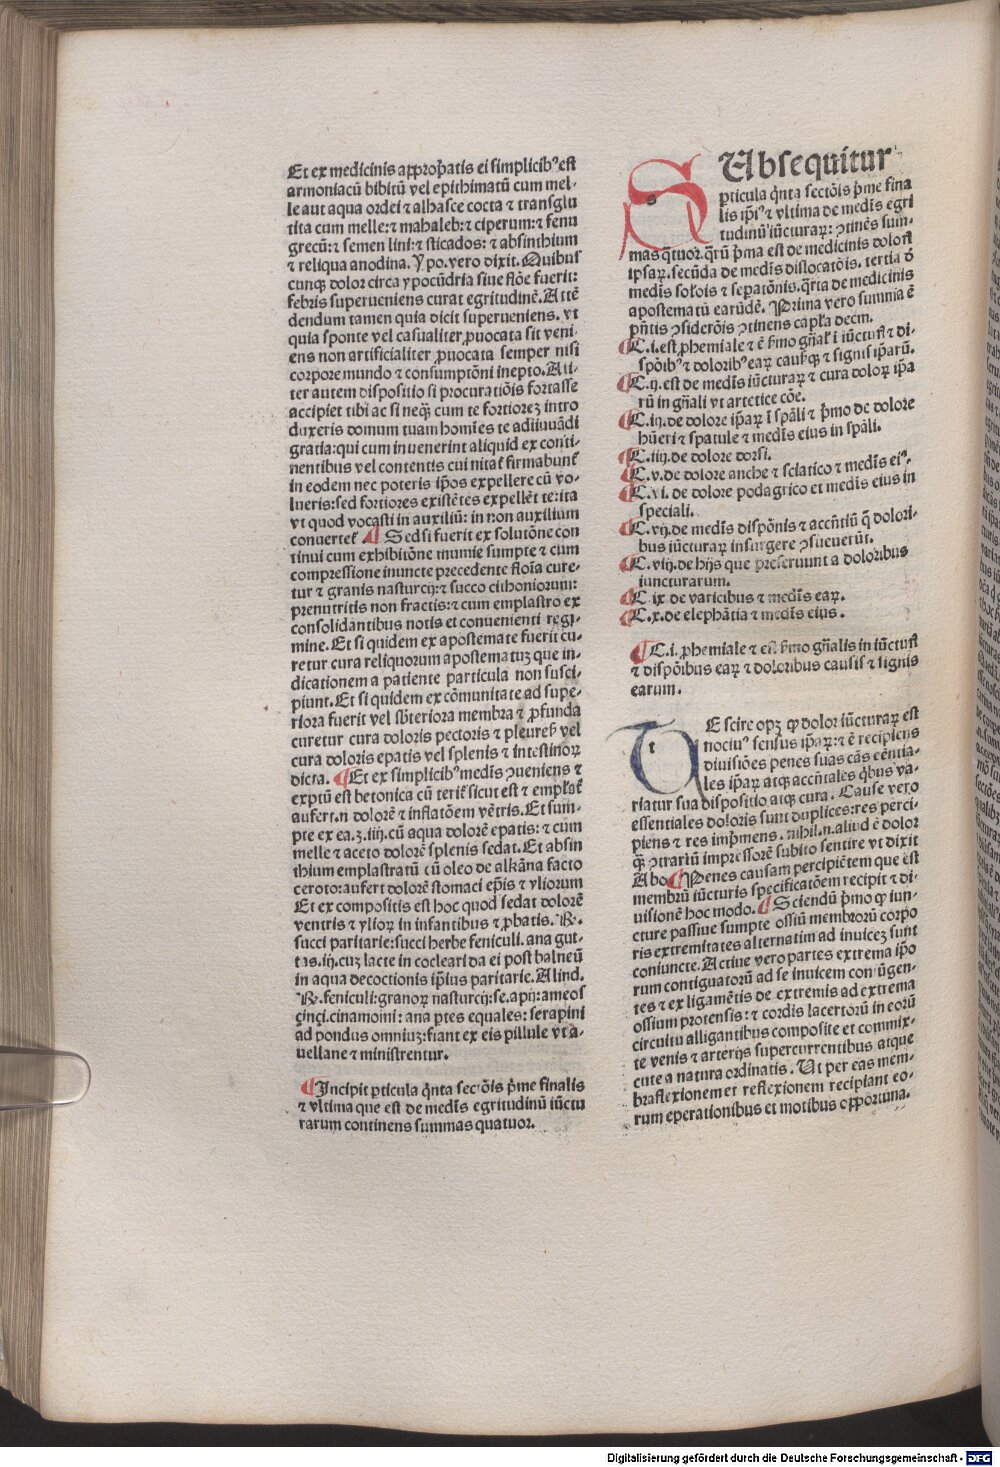 Et ex medicinis approp̄atis ei simplicibꝰ est
armoniacū bibitū vel epithimatū cum mel-
le aut aqua ordei ⁊ alhasce cocta ⁊ transglu
tita cum melle:⁊ mahaleb:⁊ ciperum:⁊ fenu
grecū:⁊ semen lini:⁊ sticados: ⁊ absinthium
⁊ reliqua anodina. Ypo. vero dixit. Quibus
cunqꝫ dolor circa ypocūdria siue flōe fuerit:
febris superueniens curat egritudinē. Attē
dendum tamen quia dicit superueniens. vt
quia sponte vel casualiter ꝓuocata sit veni-
ens non artificialiter ꝓuocata semper nisi
corpore mundo ⁊ consumptōni inepto. Ali-
ter autem dispositio si procuratiōis fortasse
accipiet tibi ac si neqꝫ cum te fortiorez intro
duxeris domum tuam homies te adiuuādi
gratia:qui cum inuenerint aliquid ex conti-
nentibus vel contentis cui nitat̄ firmabunt̄
in eodem nec poteris ip̄os expellere cū vo-
lueris:sed fortiores existētes expellēt te:ita
vt quod vocasti in auxiliū: in non auxilium
conuertet̄ ¶ Sed si fuerit ex solutōne con
tinui cum exhibitōne mumie sumpte ⁊ cum
compressione inuncte precedente floīa cure-
tur ⁊ granis nasturcij:⁊ succo cithoniorum:
prenutritis non fractis:⁊ cum emplastro ex
consolidantibus notis et conuenienti regi-
mine. Et si quidem ex apostemate fuerit cu-
retur cura reliquorum apostematuꝫ que in-
dicationem a patiente particula non susci-
piunt. Et si quidem ex cōmunitate ad supe-
riora fuerit vel sb̄teriora membra ⁊ ꝓfunda
curetur cura doloris pectoris ⁊ pleureꝭ vel
cura doloris epatis vel splenis ⁊ intestinoꝝ
dicta. ¶ Et ex simplicibꝰ medīs ꝯueniens ⁊
exptū est betonica cū terit̄ sicut est ⁊ emplat̄
aufert.n dolorē ⁊ inflatōem vētris. Et sum-
pte ex ea.ʒ.iiij.cū aqua dolorē epatis: ⁊ cum
melle ⁊ aceto dolorē splenis sedat. Et absin
thium emplastratū cū oleo de alkāna facto
ceroto:aufert dolorē stomaci ep̄is ⁊ yliorum
Et ex compositis est hoc quod sedat dolorē
ventris ⁊ ylioꝝ in infantibus ⁊ ꝓbatis. ℞.
succi paritarie:succi herbe feniculi. ana gut-
tas.iij.cuꝫ lacte in cocleari da ei post balneū
in aqua decoctionis ip̄ius paritarie. Aliud.
℞.feniculi:granoꝝ nasturcij:se.apij:ameos
çinçi.cinamomi: ana ꝑtes equales: serapini
ad pondus omniuꝫ:fiant ex eis pillule vt a-
uellane ⁊ ministrentur.
¶ Incipit ꝑticula qͥnta sectōis pͥme finalis
⁊ vltima que est de medīs egritudinū iūctu
rarum continens summas quatuor.
SUbsequitur
ꝑticula qͥnta sectōis pͥme fina
lis ip̄iꝰ ⁊ vltima de medīs egri
tudinū iūcturaꝝ: ꝯtinēs sum-
mas qͣtuor. qͣrū pͥma est de medicinis dolorū
ipsaꝝ. secūda de medīs dislocatōis. tertia ð
medīs solōis ⁊ sepatōnis. qͣrta de medicinis
apostematū earūdē. Prima vero summa ē
pn̄tis ꝯsiderōis ꝯtinens capl̄a decm.
¶C.i.est ꝓhemiale ⁊ ē pͥmo gn̄al̄ ī iūcturꝭ ⁊ di-
spōibꝰ ⁊ doloribꝰ eaꝝ causisqꝫ ⁊ signis ip̄arū.
¶C.ij.est de medīs iūcturaꝝ ⁊ cura doloꝝ ip̄a
rū in gn̄ali vt artetice cōe.
¶C.iij.de dolore ip̄aꝝ ī spāli ⁊ pͥmo de dolore
hūeri ⁊ spatule ⁊ medīs eius in spāli.
¶C.iiij.de dolore dorsi.
¶C.v.de dolore anche ⁊ sciatico ⁊ medīs eiꝰ.
¶C.vi. de dolore podagrico et medīs eius in
speciali.
¶C.vij.de medīs dispōnis ⁊ accn̄tiū q̄ dolori-
bus iūcturaꝝ insurgere ꝯsueuerūt.
¶C.viij.de hijs que preseruunt a doloribus
iuncturarum.
¶C.ix de varicibus ⁊ medīs eaꝝ.
¶C.x.de elephātia ⁊ medīs eius.
¶C.i.ꝓhemiale ⁊ est pͥmo gn̄alis in iūcturꝭ
⁊ dispōibus eaꝝ ⁊ doloribus causis ⁊ signis
earum.
UE scire opꝫ ꝙ dolor iūcturaꝝ est
nociuꝰ sensus ip̄aꝝ:⁊ ē recipiens
diuisiōes penes suas cās eēntia-
les ip̄aꝝ atqꝫ accn̄tales qͥbus va-
riatur sua dispositio atqꝫ cura. Cause vero
essentiales doloris sunt duplices:res perci-
piens ⁊ res imp̄mens. nihil.n.aliud ē dolor
qͣꝫ ꝯtrariū impressorē subito sentire vt dixit
Abo ¶ Penes causam percipiētem que est
membrū iūcturis specificatōem recipit ⁊ di-
uisionē hoc modo. ¶ Sciendū pͥmo ꝙ iun-
cture passiue sumpte ossiū membrorū corpo
ris extremitates alternatim ad inuiceꝫ sunt
coniuncte. Actiue vero partes extrema ip̄o
rum contiguatorū ad se inuicem coniūgen-
tes ⁊ ex ligamētis de extremis ad extrema
ossium protensis: ⁊ cordis lacertorū in eorū
circuitu alligantibus composite et commix-
te venis ⁊ arterijs supercurrentibus atque
cute a natura ordinatis. Ut per eas mem-
bra flexionem et reflexionem recipiant eo-
rum operationibus et motibus opportuna.
Digitalisierung gefördert durch die Deutsche Forschungsgemeinschaft - DFG